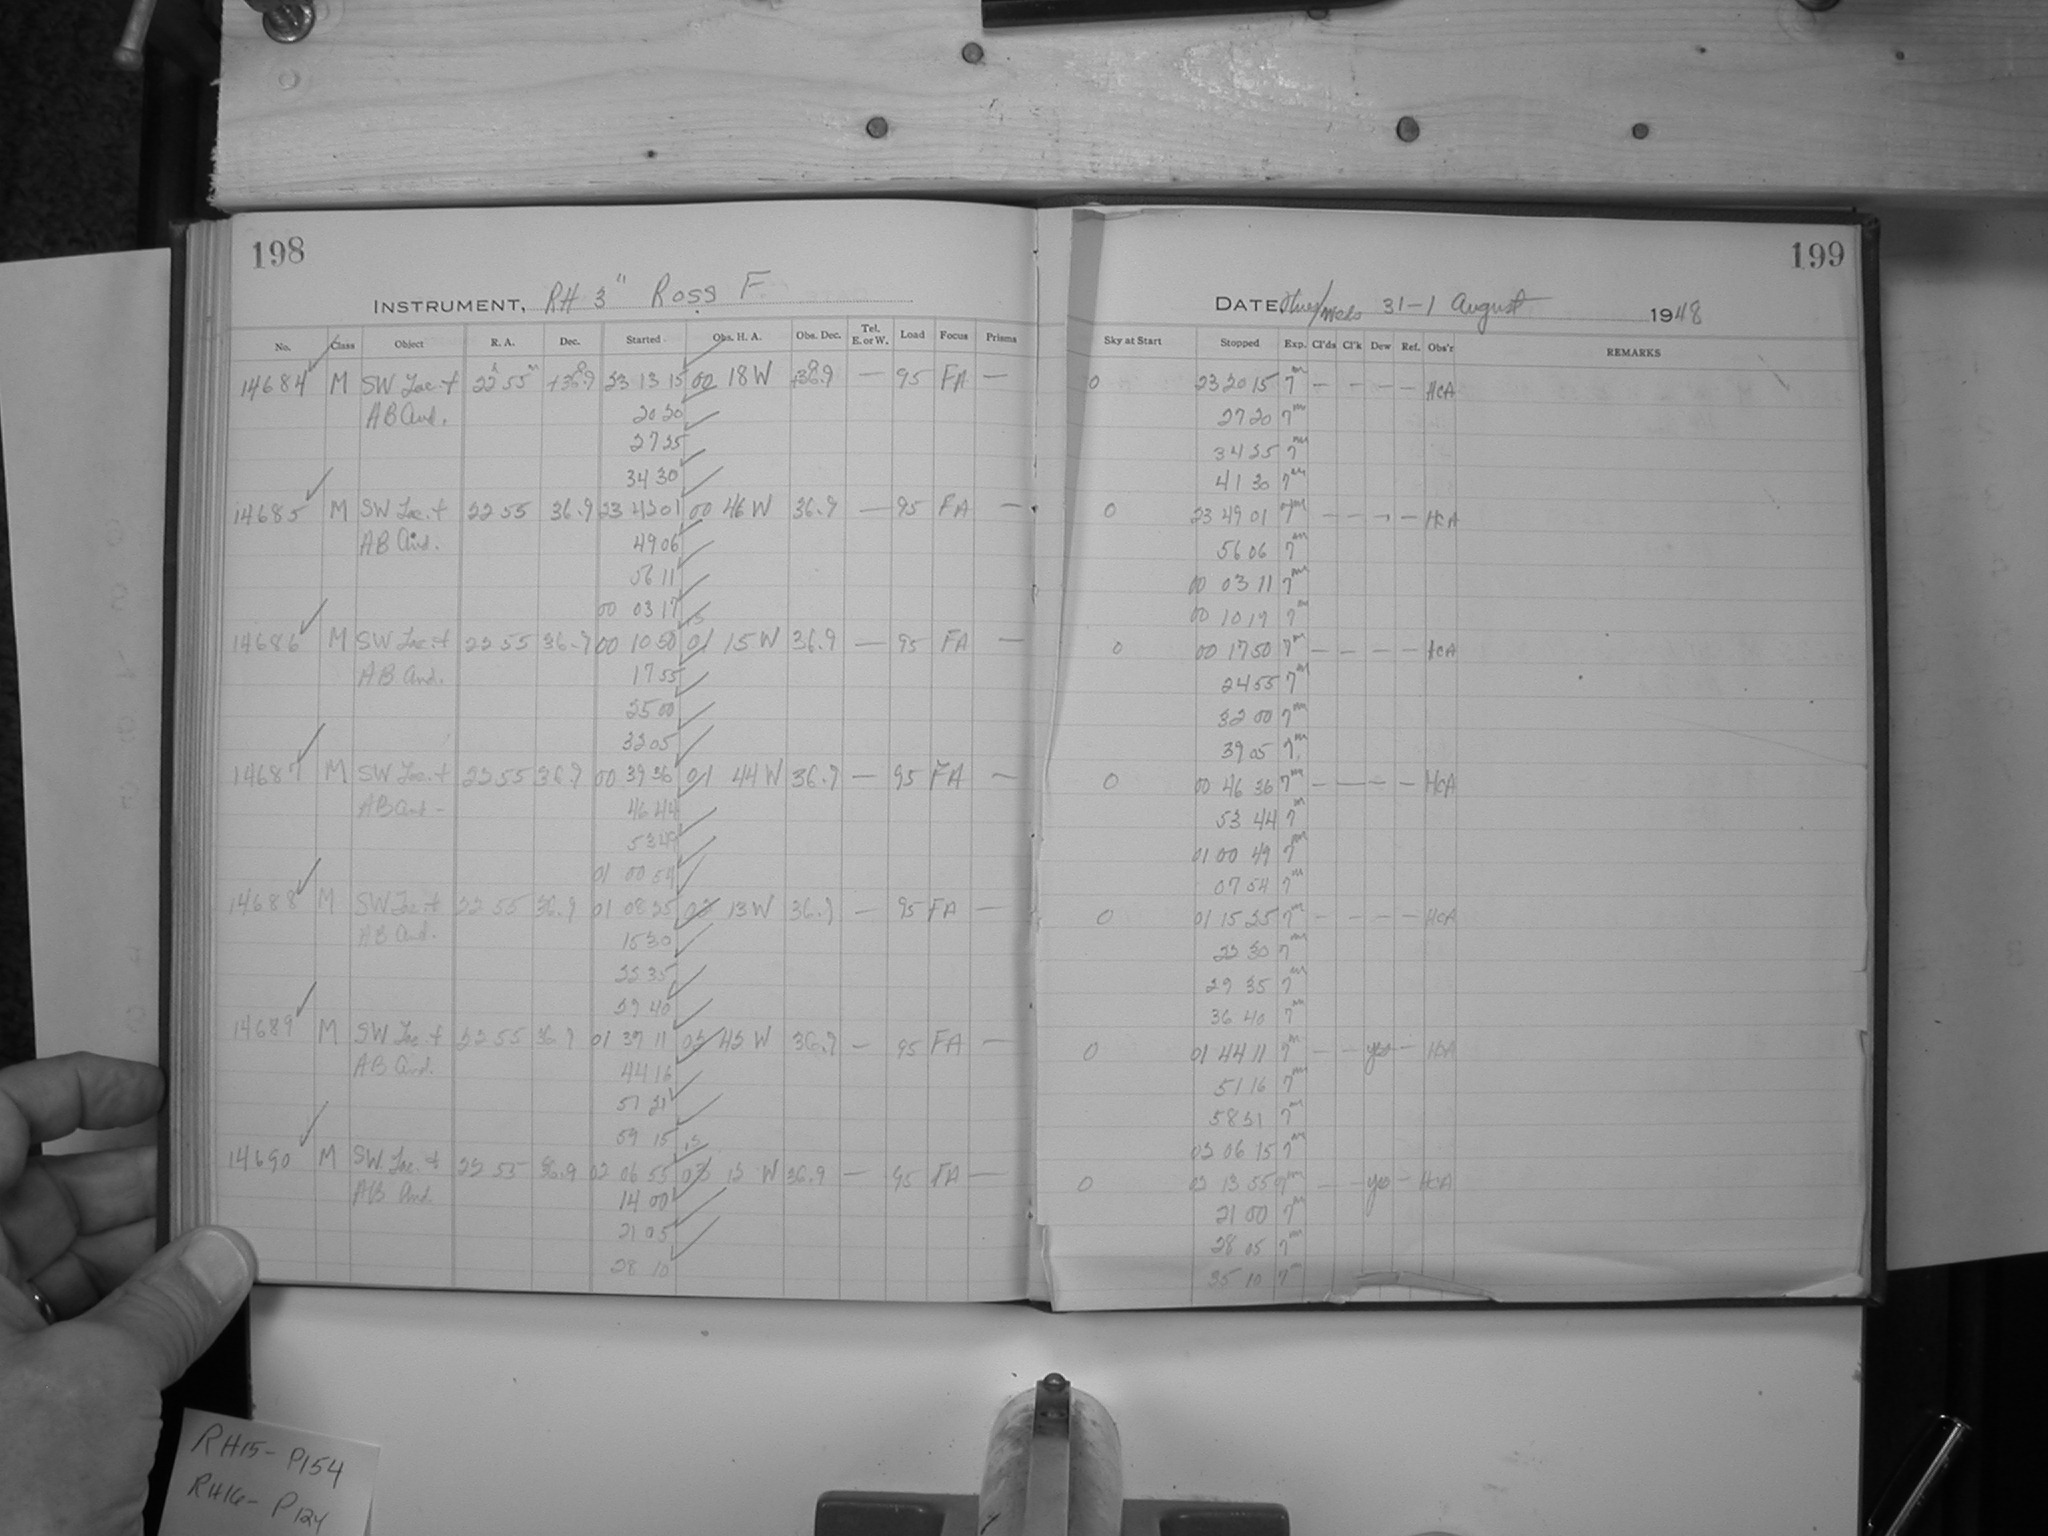 198
INSTRUMENT, RH 3" Ross F.
No. Class Object R. A. Dec. Started Obs. H. A. Obs. Dec. Tel. E. or W. Load Focus Prisms
14684 M SW Lac. + 22h 55m +36.9 23 13 15 00 18 W +36.9 — 95 FA —
AB And. 20 20
27 25
34 30
14685 M SW Lac. + 22 55 36.9 23 42 01 00 46 W 36.9 — 95 FA —
AB And. 49 06
56 11
00 03 17
14686 M SW Lac. + 22 55 36.9 00 10 50 01 15 W 36.9 — 95 FA —
AB And. 17 55
25 00
32 05
14687 M SW Lac. + 22 55 36.9 00 39 36 01 44 W 36.9 — 95 FA —
AB And - 46 44
53 49
01 00 54
14688 M SW Lac. + 22 55 36.9 01 08 25 02 13 W 36.9 — 95 FA —
AB And. 15 30
22 35
29 40
14689 M SW Lac. + 22 55 36.9 01 37 11 02 42 W 36.9 — 95 FA —
AB And. 44 16
51 21
59 15
14690 M SW Lac. + 22 55 36.9 02 06 55 03 12 W 36.9 — 95 FA —
AB And. 14 00
21 05
28 10
199
DATE Weds 31-1 August 1948
Sky at Start Stopped Exp. Cl'ds Cl'k Dew Ref. Obs'r REMARKS
0 23 20 15 7m — — — — HCA
27 20 7m
34 25 7m
41 30 7m
0 23 49 01 7m — — — — HCA
56 06 7m
00 03 11 7m
00 10 17 7m
0 00 17 50 7m — — — — HCA
24 55 7m
32 00 7m
39 05 7m
0 00 46 36 7m — — — — HCA
53 44 7m
01 00 49 7m
07 54 7m
0 01 15 25 7m — — — — HCA
22 30 7m
29 35 7m
36 40 7m
0 01 44 11 7m — — yes — HCA
51 16 7m
58 21 7m
02 06 15 7m
0 02 13 55 7m — — yes — HCA
21 00 7m
28 05 7m
35 10 7m
RH15- P154
RH16- P124